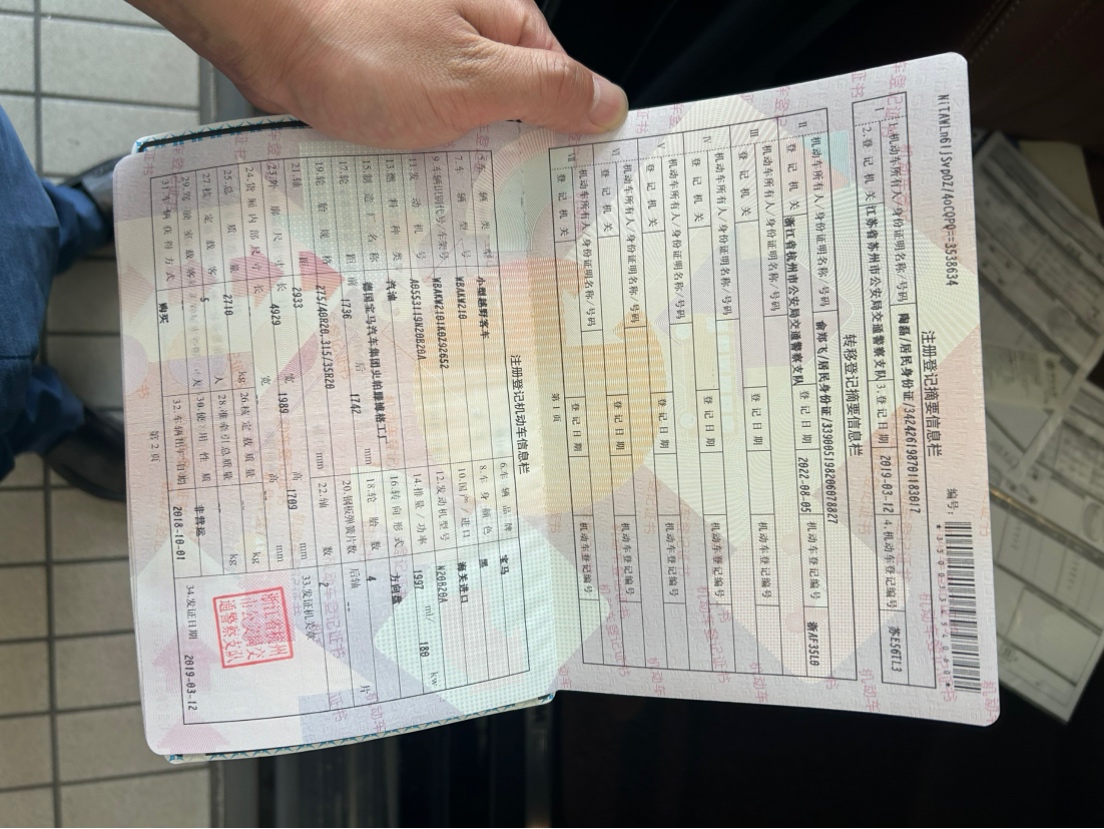 NiTAWLn61jSvpOZ/4oCQPQ==3538634
编号:
注册登记摘要信息栏
I
1.机动车所有人/身份证明名称/号码 陶磊/居民身份证/342426198701183017
2.登记机关 江苏省苏州市公安局交通警察支队 3.登记日期 2019-03-12 4.机动车登记编号 苏E56TL3
转移登记摘要信息栏
II 机动车所有人/身份证明名称/号码 俞郑飞/居民身份证/339005198206078827
登记机关 浙江省杭州市公安局交通警察支队 登记日期 2022-08-05 机动车登记编号 浙AF35L0
III 机动车所有人/身份证明名称/号码
登记机关 登记日期 机动车登记编号
IV 机动车所有人/身份证明名称/号码
登记机关 登记日期 机动车登记编号
V 机动车所有人/身份证明名称/号码
登记机关 登记日期 机动车登记编号
VI 机动车所有人/身份证明名称/号码
登记机关 登记日期 机动车登记编号
VII 机动车所有人/身份证明名称/号码
登记机关 登记日期 机动车登记编号
第1页
注册登记机动车信息栏
5.车辆类型 小型越野客车 6.车辆品牌 宝马
7.车辆型号 WBAKW210 8.车身颜色 黑
9.车辆识别代号/车架号 WBAKW2101K0Z92652 10.国产/进口 海关进口
11.发动机号 A0553119N20B20A 12.发动机型号 N20B20A
13.燃料种类 汽油 14.排量/功率 1997 ml/ 180 kw
15.制造厂名称 德国宝马汽车集团史帕滕堡格工厂 16.转向形式 方向盘
17.轮距 前 1736 后 1742 mm 18.轮胎数 4
19.轮胎规格 275/40R20,315/35R20 20.钢板弹簧片数 后轴 -- 片
21.轴距 2933 mm 22.轴数 2
23.外廓尺寸 长 4929 宽 1989 高 1709 mm
33.发证机关章
24.货厢内部尺寸 长 宽 高 mm
25.总质量 2710 kg 26.核定载质量 kg
27.核定载客 5 人 28.准牵引总质量 kg
29.驾驶室载客 人 30.使用性质 非营运
31.车辆获得方式 购买 32.车辆出厂日期 2018-10-01 34.发证日期 2019-03-12
第2页